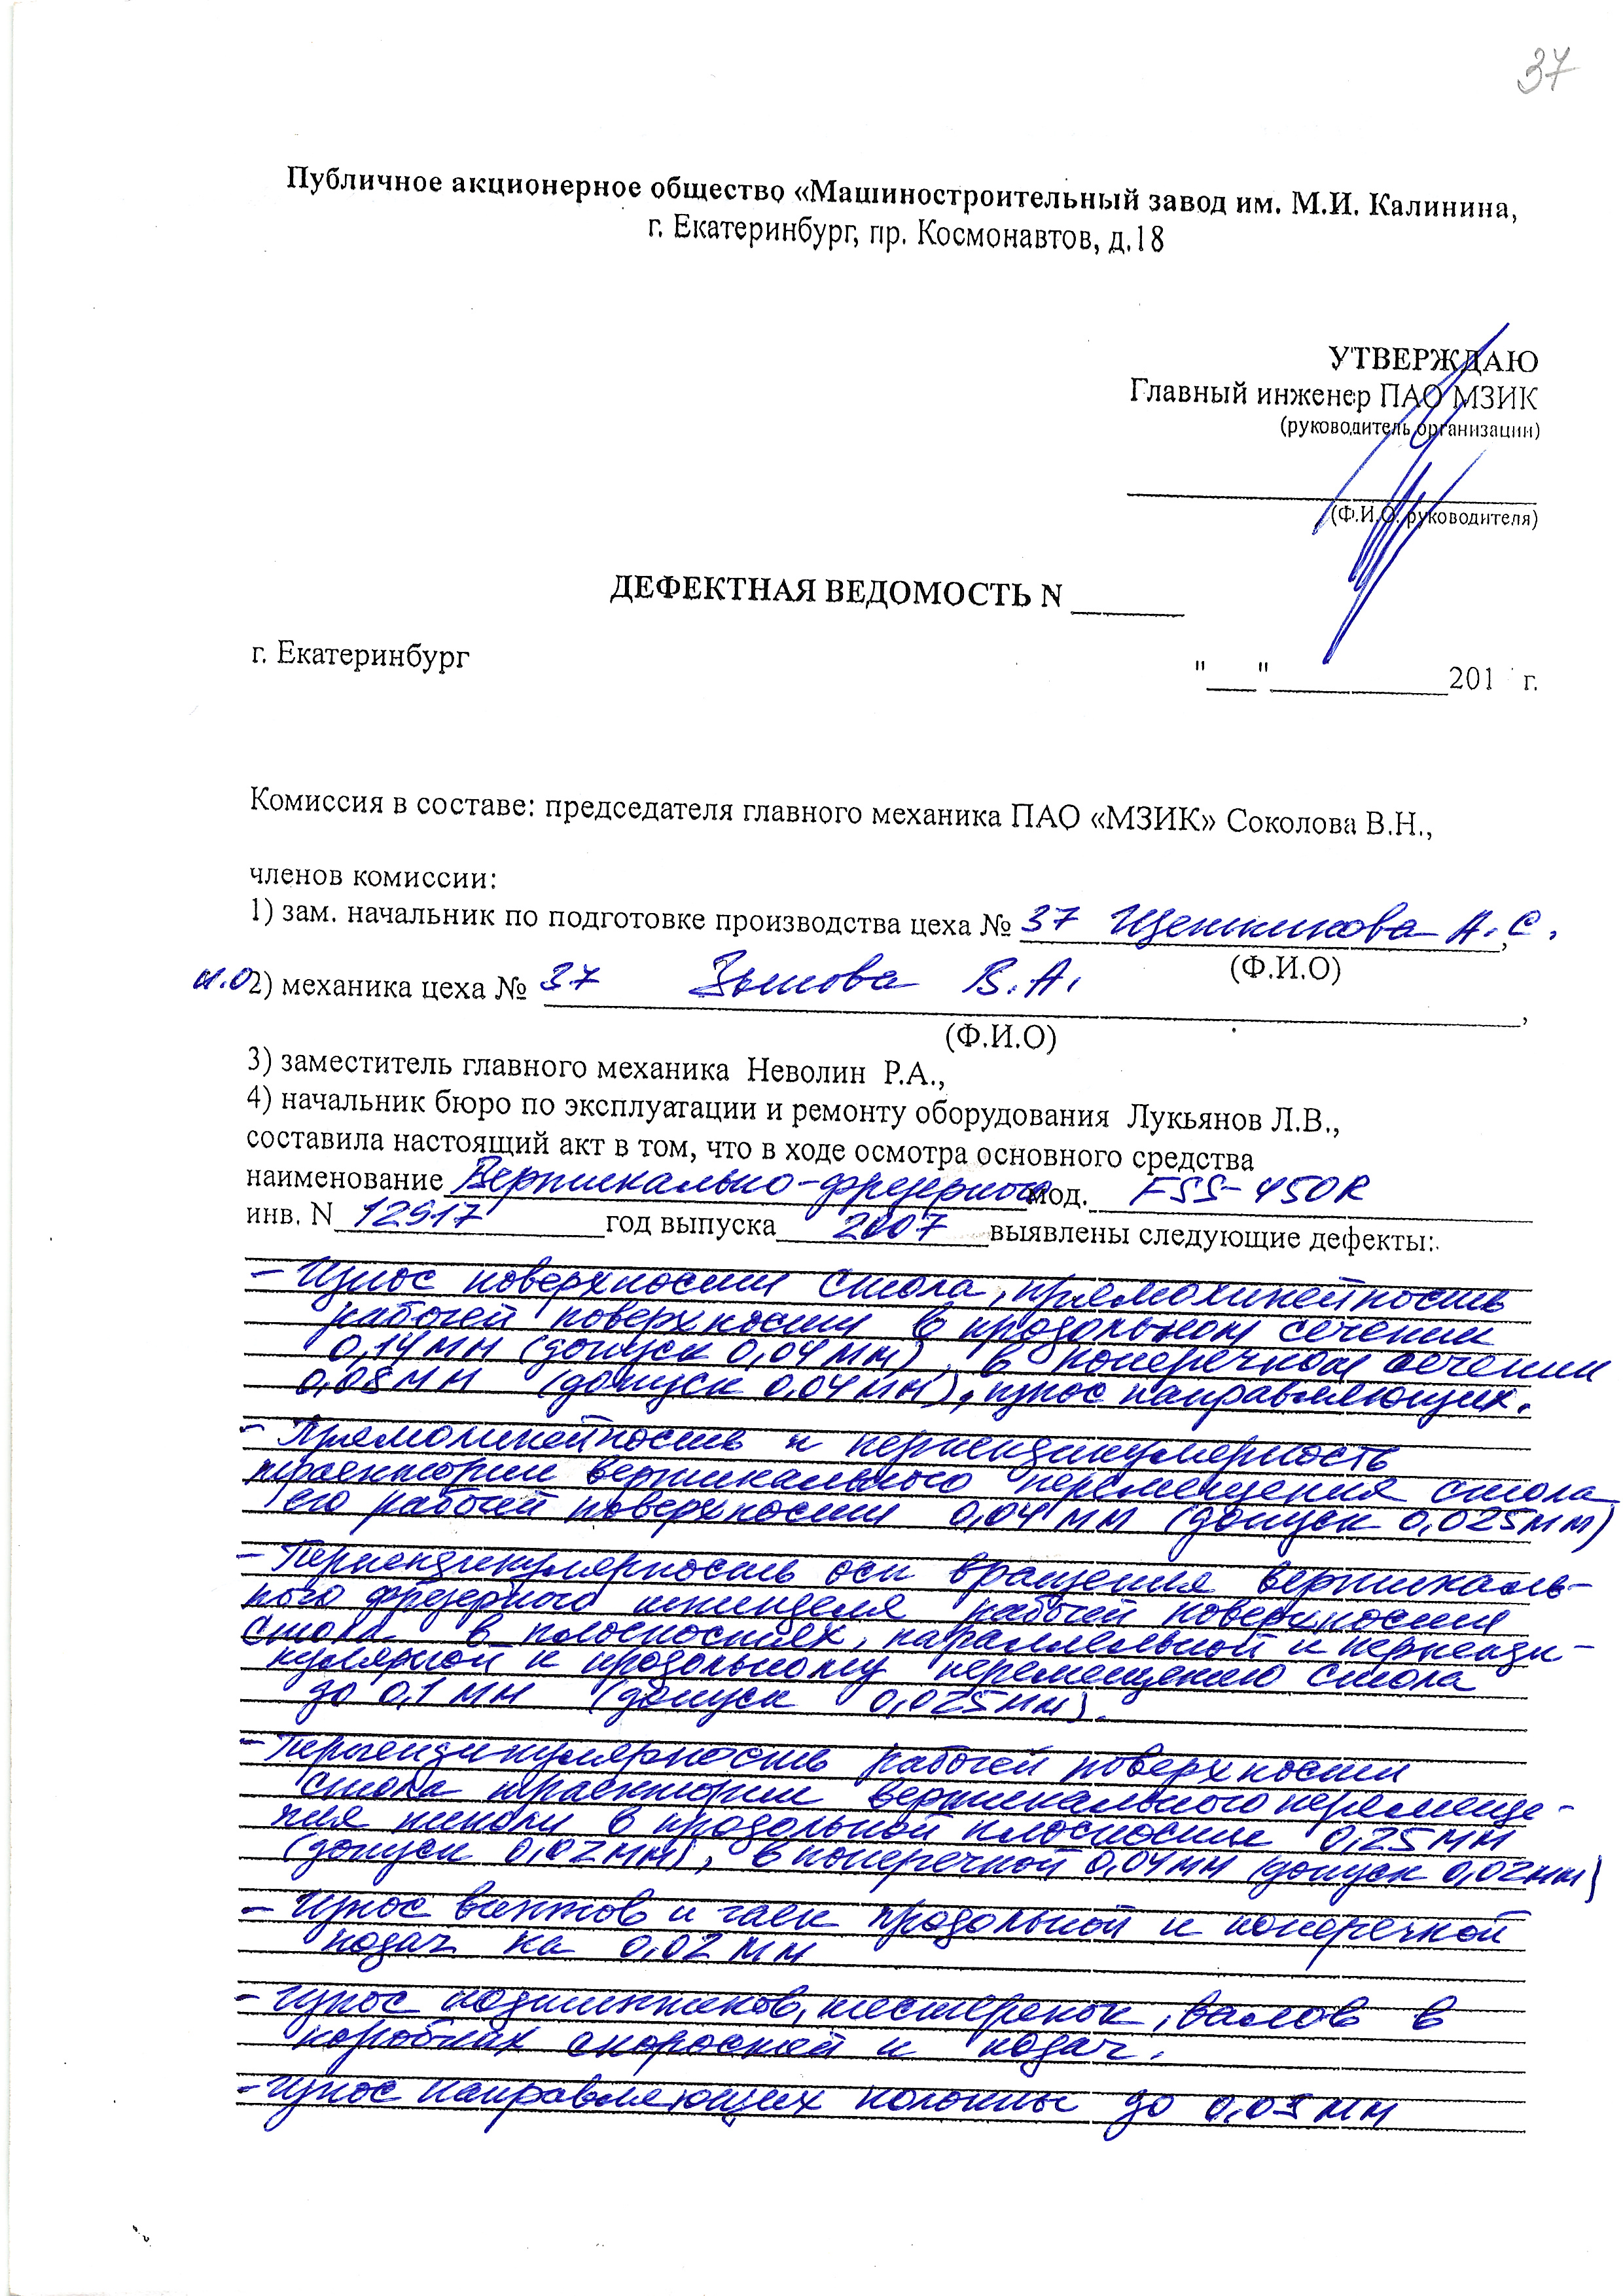 37
Публичное акционерное общество «Машиностроительный завод им. М.И. Калинина,
г. Екатеринбург, пр. Космонавтов, д.18
УТВЕРЖДАЮ
Главный инженер ПАО МЗИК
(руководитель организации)
(Ф.И.О. руководителя)
ДЕФЕКТНАЯ ВЕДОМОСТЬ N ______
г. Екатеринбург "___"___________201 г.
Комиссия в составе: председателя главного механика ПАО «МЗИК» Соколова В.Н.,
членов комиссии:
1) зам. начальник по подготовке производства цеха № 37 Щетникова А.С.,
(Ф.И.О)
и.о 2) механика цеха № 37 Зыкова В.А.,
(Ф.И.О)
3) заместитель главного механика Неволин Р.А.,
4) начальник бюро по эксплуатации и ремонту оборудования Лукьянов Л.В.,
составила настоящий акт в том, что в ходе осмотра основного средства
наименование Вертикально-фрезерного мод. FSS-450R
инв. N 12917 год выпуска 2007 выявлены следующие дефекты:
- Износ поверхности стола, прямолинейность
рабочей поверхности в продольном сечении
0,14 мм (допуск 0,04 мм), в поперечном сечении
0,08 мм (допуск 0,04 мм), износ направляющих.
- Прямолинейность и перпендикулярность
траектории вертикального перемещения стола
его рабочей поверхности 0,04 мм (допуск 0,025 мм)
- Перпендикулярность оси вращения вертикаль-
ного фрезерного шпинделя рабочей поверхности
стола в плоскостях, параллельной и перпенди-
кулярной к продольному перемещению стола
до 0,1 мм (допуск 0,025 мм).
- Перпендикулярность рабочей поверхности
стола траектории вертикального перемеще-
ния пиноли в продольной плоскости 0,25 мм
(допуск 0,02 мм), в поперечной 0,04 мм (допуск 0,02 мм)
- Износ винтов и гаек продольной и поперечной
подач на 0,02 мм
- Износ подшипников, шестеренок, валов в
коробках скоростей и подач.
- Износ направляющих колонны до 0,09 мм